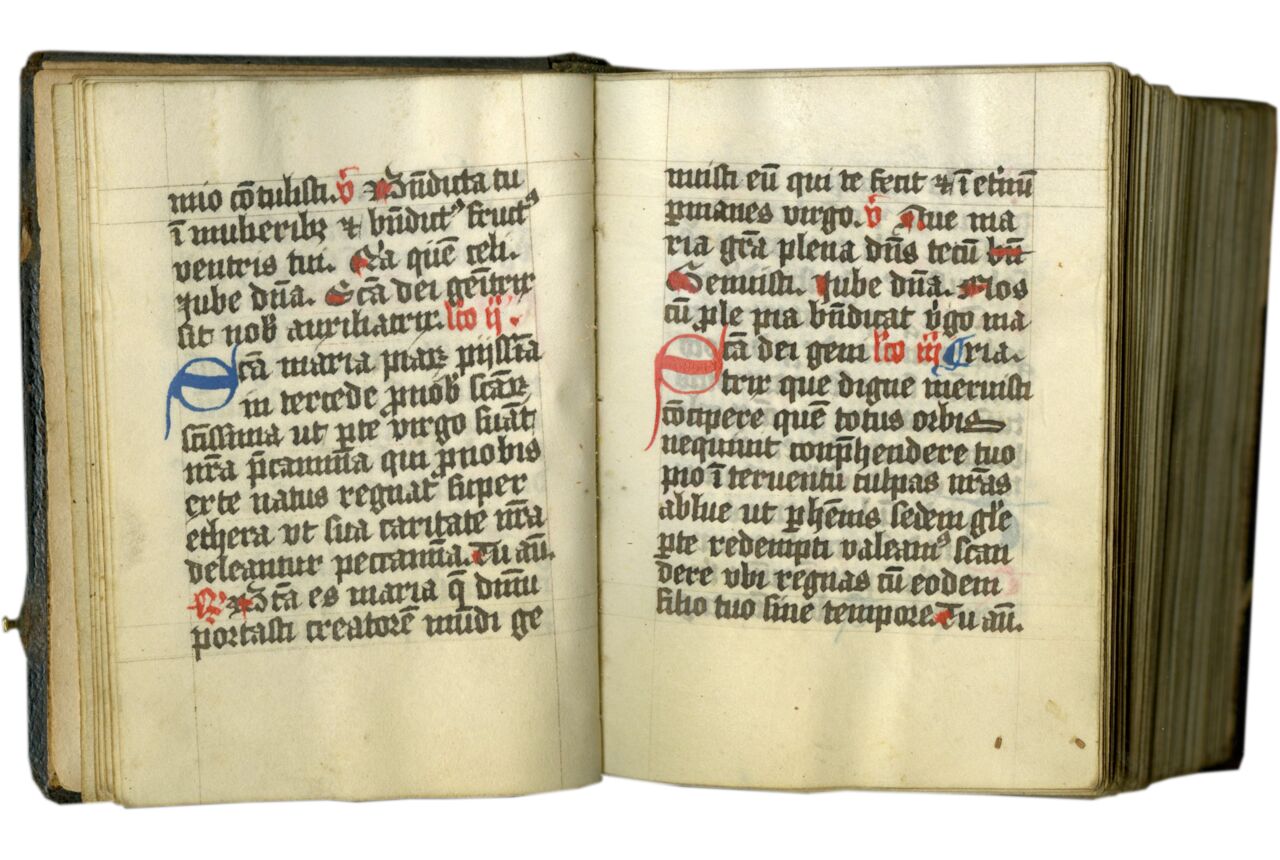 mio cōtulisti. v̄ Bn̄dicta tu
ī mulieribꝫ ⁊ bn̄dict⁹ fruct⁹
ventris tui. Q̄a quē celi.
Jube dn̄a. Scā dei gēitrix
sit nob̄ auxiliatrix. lc̄o ij.
Scā maria piaꝝ pijssīa
in tercede ꝓnob̄ scāꝝ
scīssima ut ꝑte virgo sūat
nr̄a p̄camina qui ꝓnobis
exte natus regnat super
ethera vt sua caritate nr̄a
deleantur peccamīa. Tu aū.
R̄ Bt̄a es maria q̄ dn̄m
portasti creatorē mūdi ge
nuisti eū qui te fecit ⁊ ī etn̄ū
ꝑmanes virgo. v̄ Aue ma
ria grā plena dn̄s tecū bn̄
Genuisti. Jube dn̄a. Nos
cū ple pia bn̄dicat v̓go ma
Scā dei geni lc̄o iij ria.
trix que digne meruisti
cōcipere quē totus orbis
nequiuit conp̄hendere tuo
pio ī teruentu culpas nr̄as
ablue ut ꝑhēnis sedem glē
ꝑte redempti valeam⁹ scan
dere vbi regnas cū eodem
filio tuo sine tempore. Tu aū.